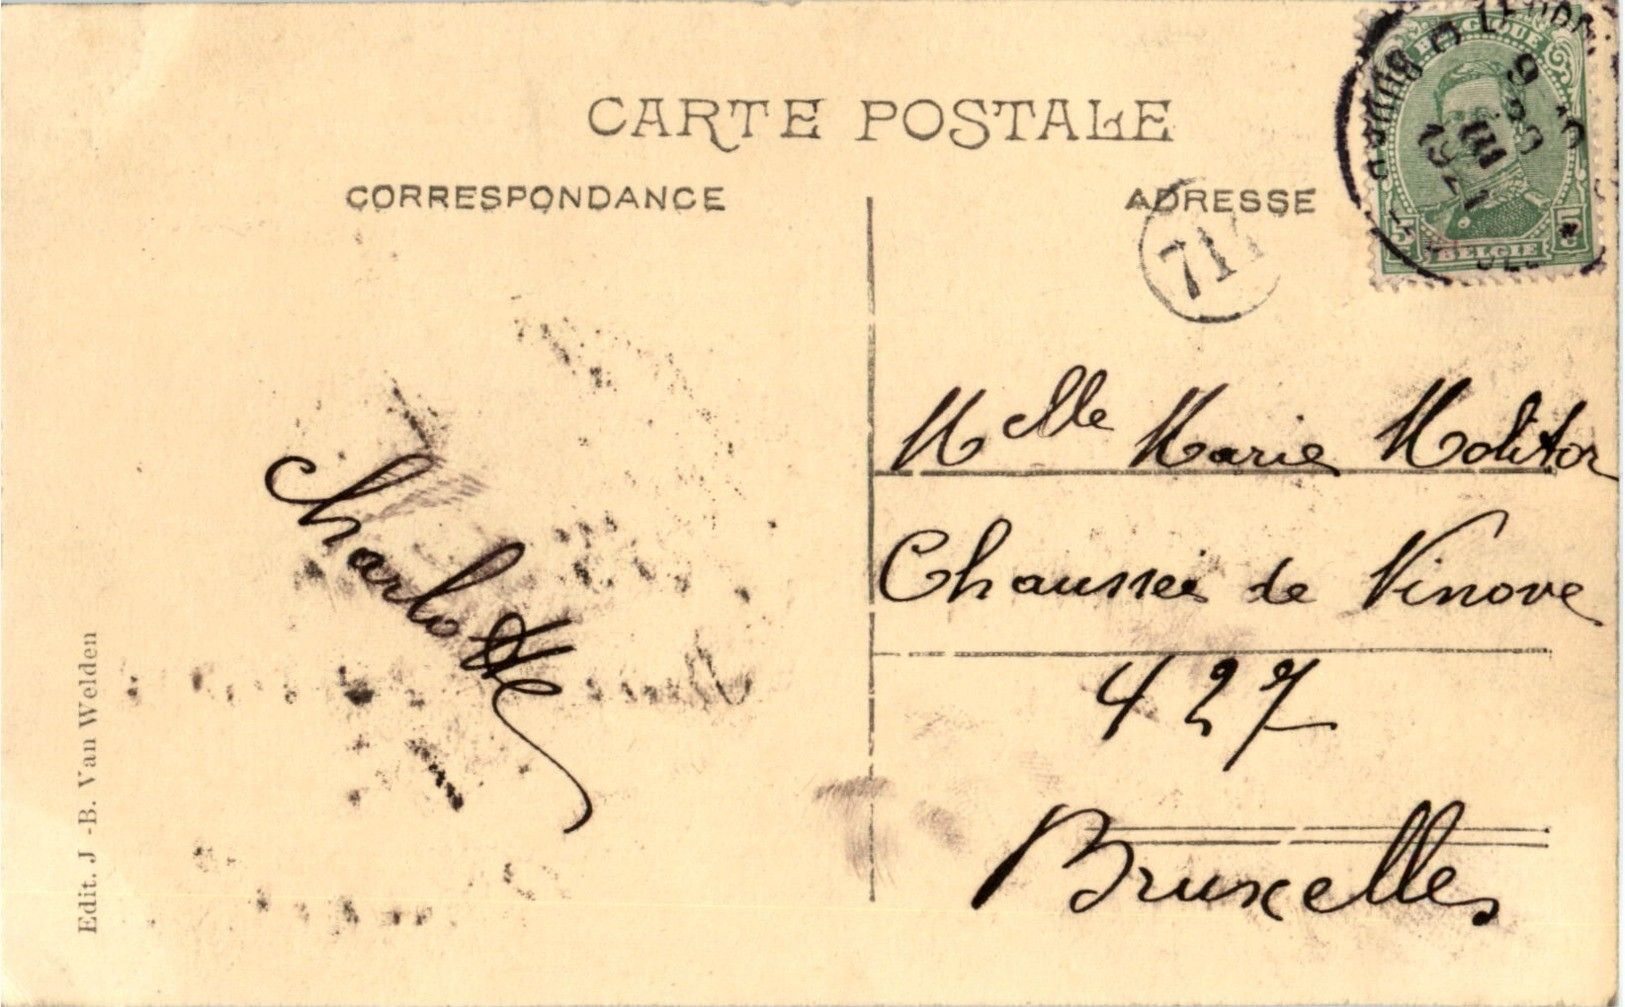 CARTE POSTALE
CORRESPONDANCE
ADRESSE
BELGIQUE
9-10
III
1921
5 BELGIE 5
711
Charlotte
Melle Marie Molitor
Chaussée de Ninove
427
Bruxelles
Edit. J -B. Van Welden